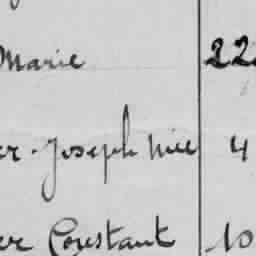 Marie 22
er. Joseph 4
er Constant 10